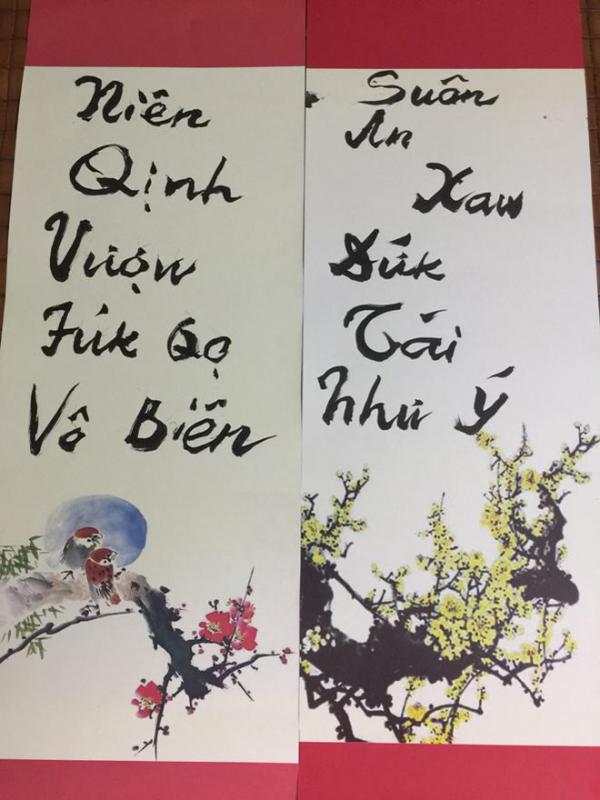 Niên
Qịnh
Vượw
Fúk Qọ
Vô Biên
Suân
An
Xaw
Dứk
Tài
Như Ý